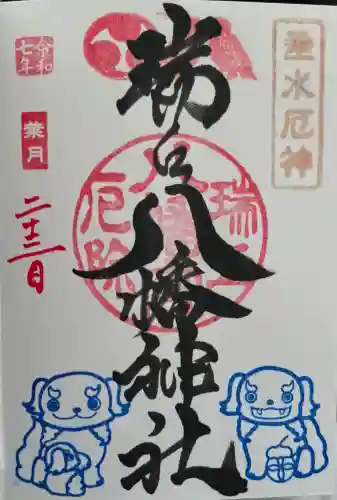 垂水厄神
瑞丘八幡神社
瑞丘
厄除
令和
七年
葉月
二十二日